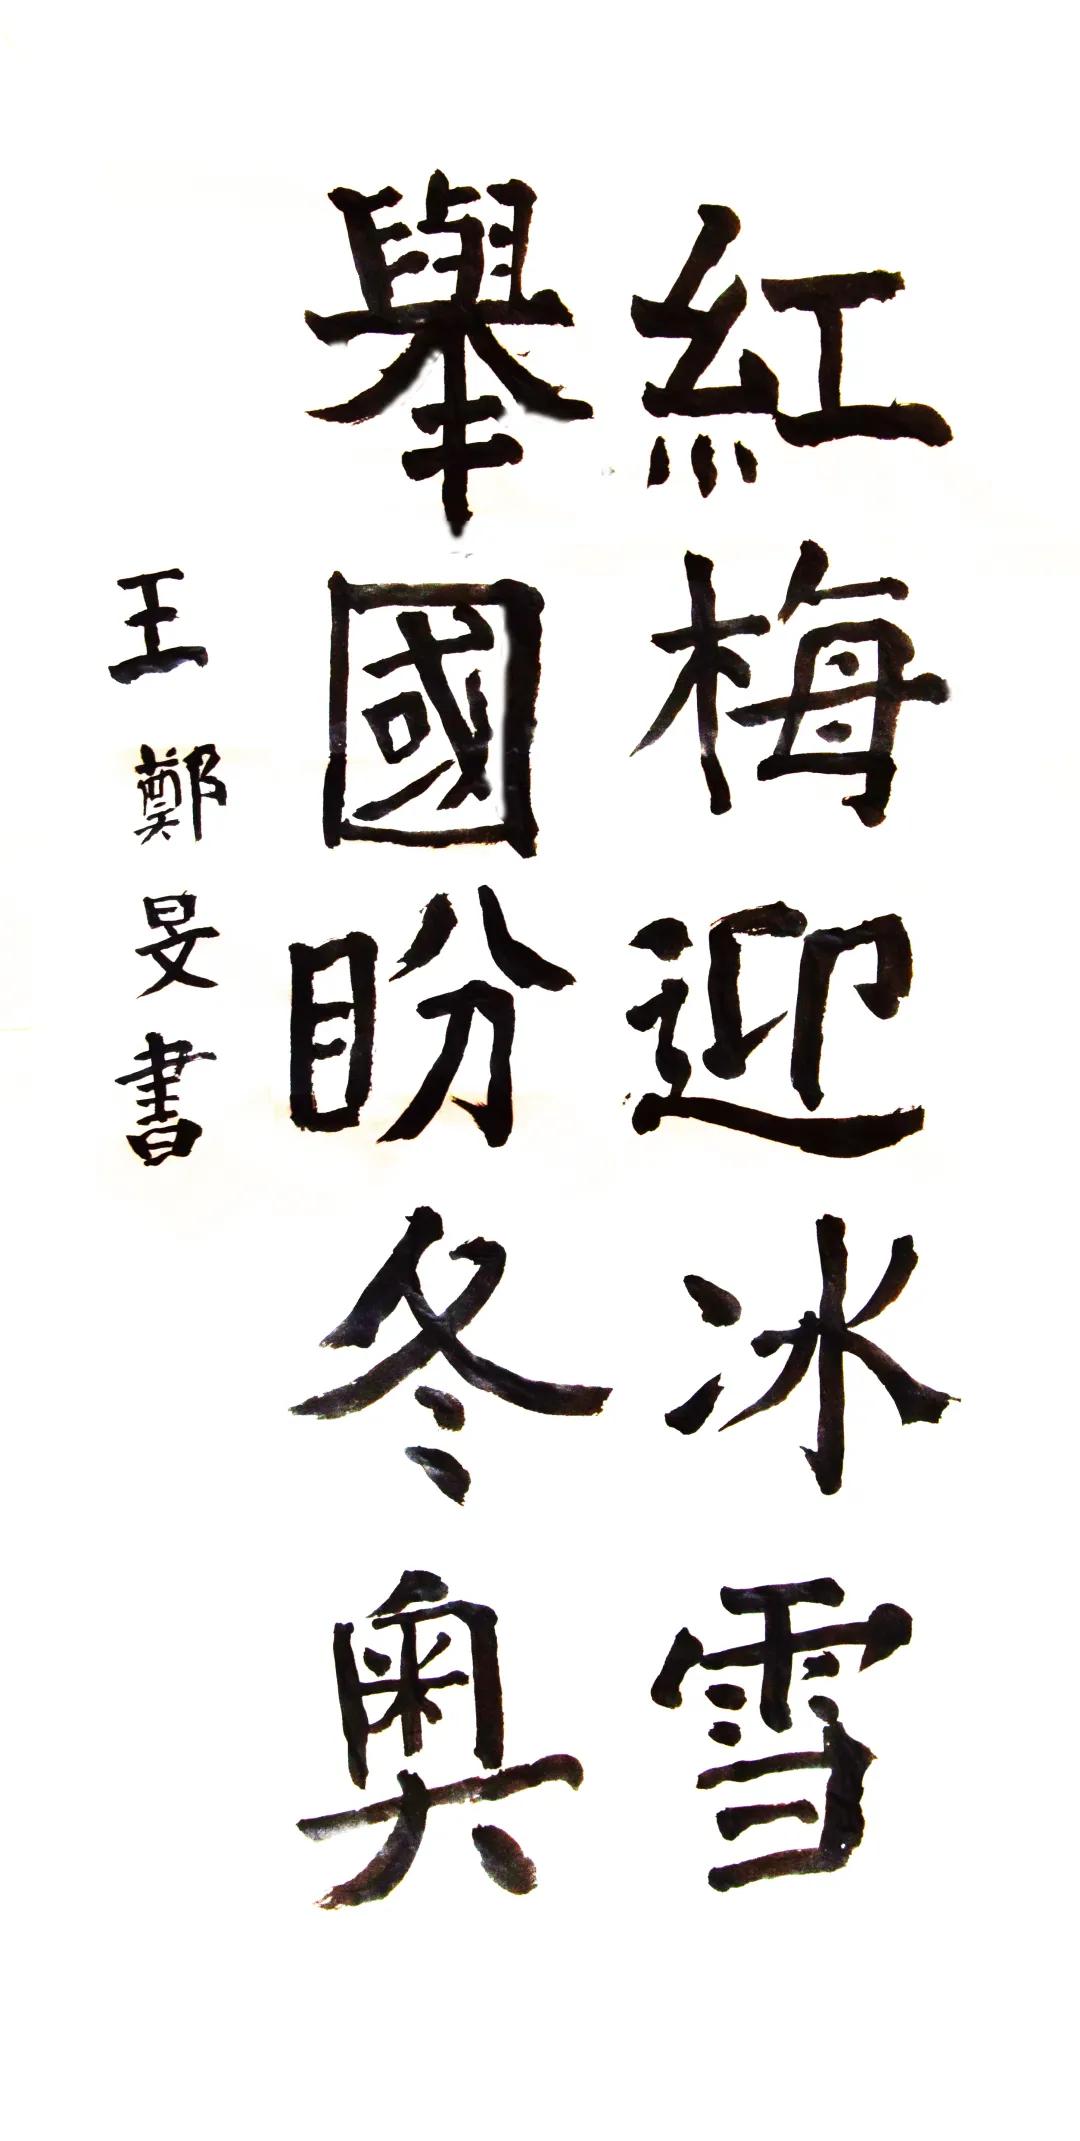 紅梅迎冰雪
舉國盼冬奥
王鄭旻書